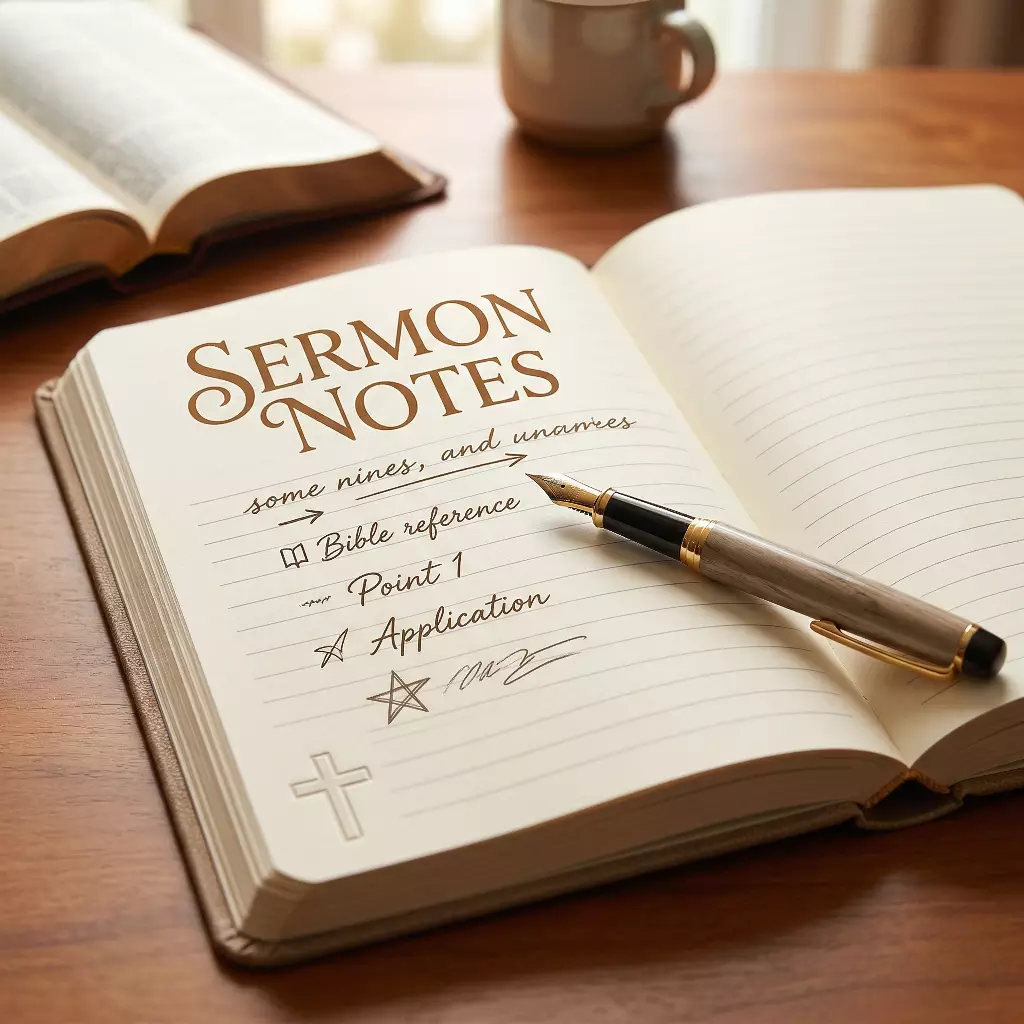 SERMON
NOTES
some nines, and
Bible reference
Point 1
Application